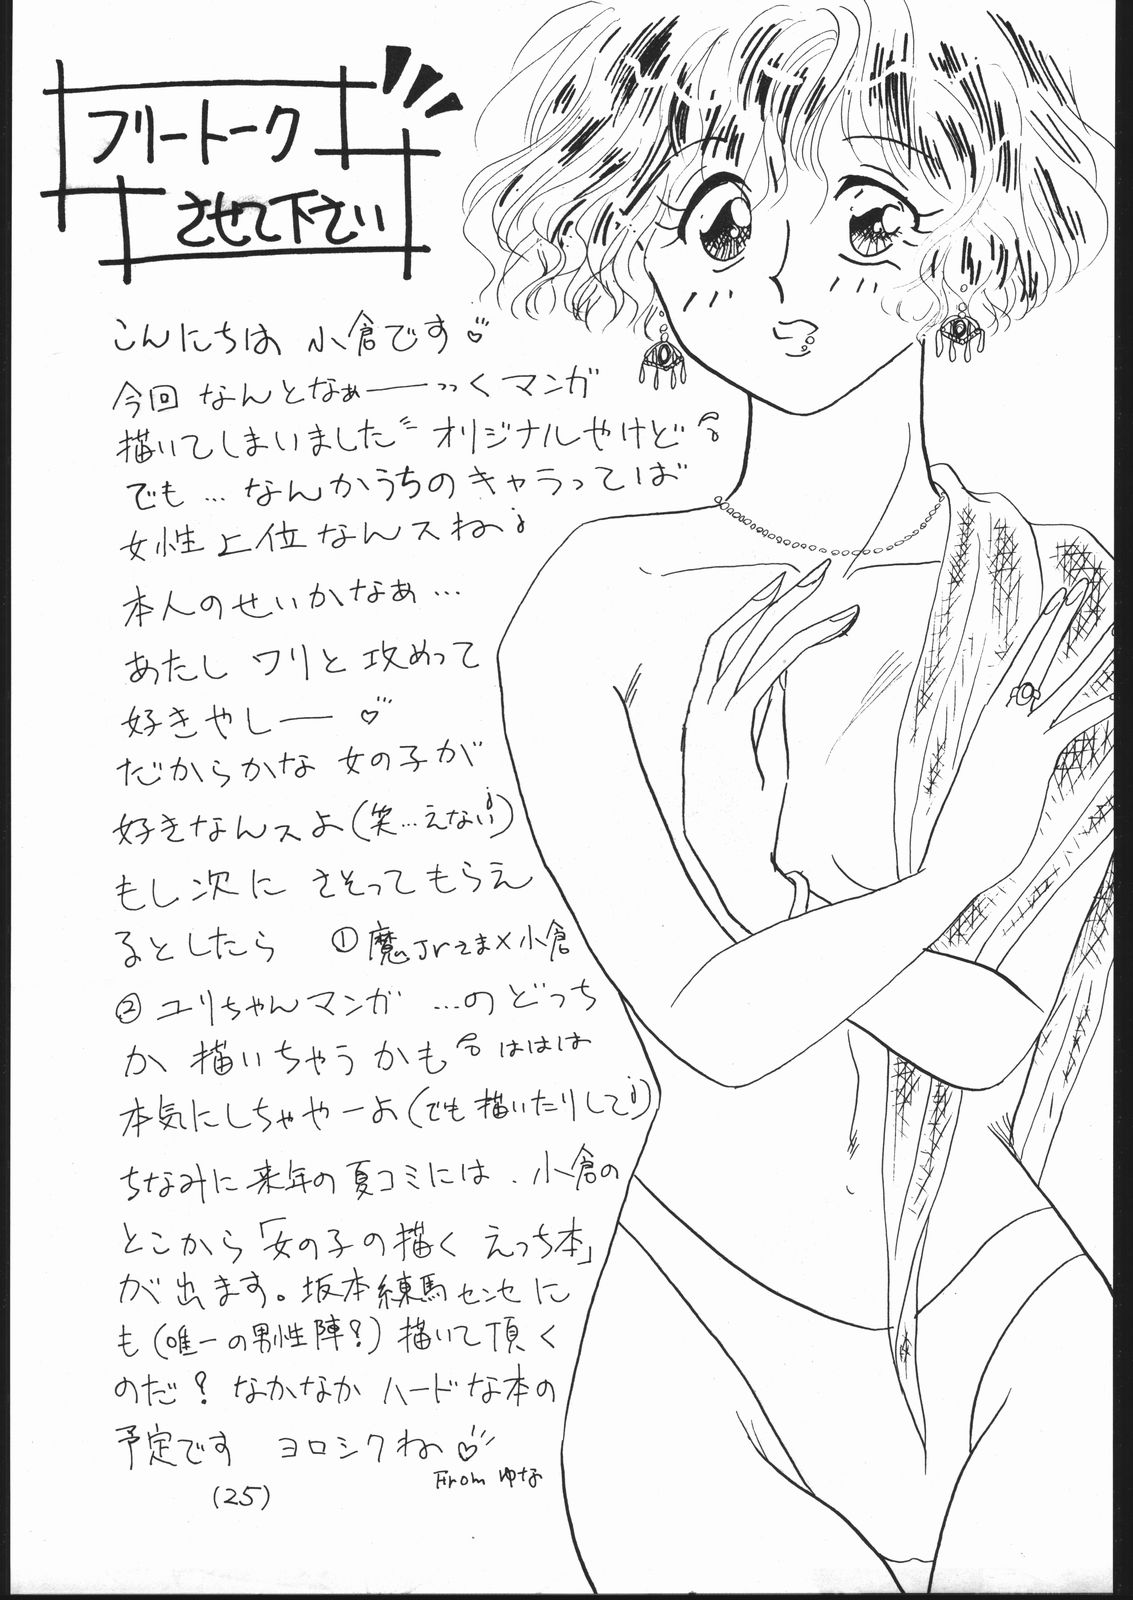 フリートーク
させて下さい
こんにちは 小倉です♡
今回 なんとなぁ──っっく マンガ
描いてしまいました オリジナルやけど
でも … なんかうちのキャラってば
女性上位なんスね
本人のせいかなぁ…
あたし ワリと 攻めって
好きやし── ♡
だからかな 女の子が
好きなんスよ(笑…えない)
もし次に さそってもらえ
るとしたら ①魔Jrさま×小倉
②ユリちゃんマンガ …のどっち
か 描いちゃうかも ははは
本気にしちゃやーよ(でも描いたりして)
ちなみに来年の夏コミには、小倉の
とこから「女の子の描く えっち本」
が出ます。坂本練馬センセに
も(唯一の男性陣?)描いて頂く
のだ? なかなか ハードな本の
予定です ヨロシクね♡
From ゆな
(25)